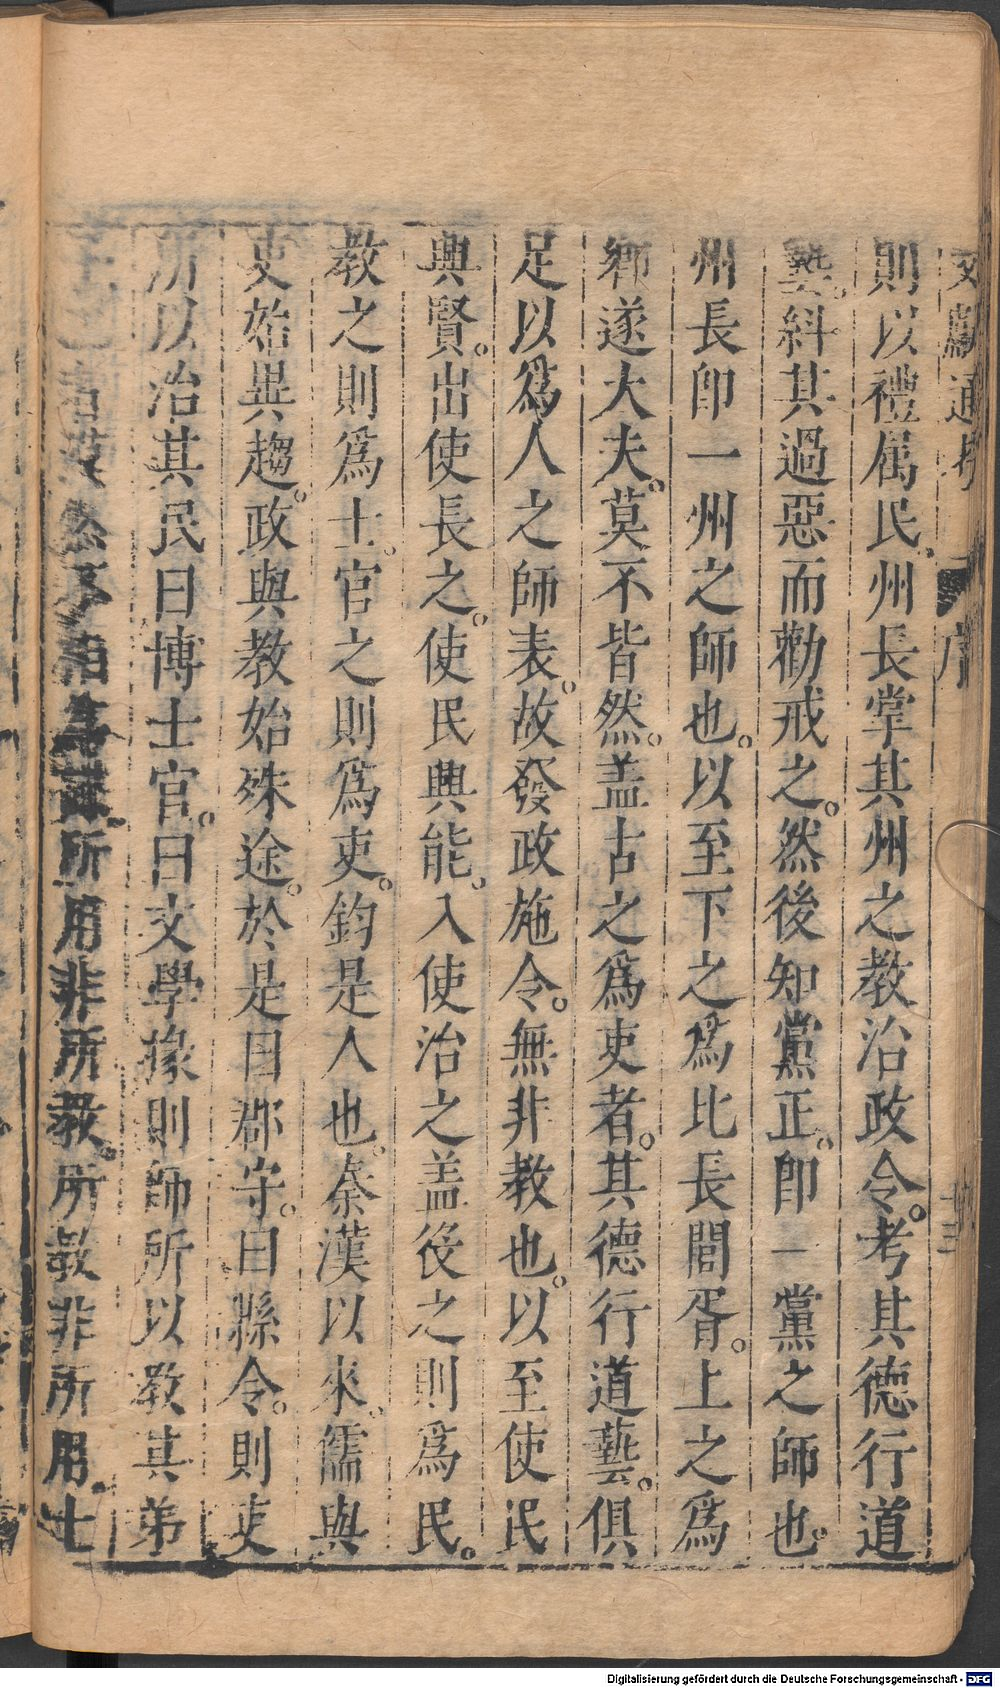 文獻通考 序 十三
則以禮属民。州長掌其州之教治政令。考其德行道
藝。糾其過惡而勸戒之。然後知黨正。卽一黨之師也。
州長卽一州之師也。以至下之爲比長閭胥。上之爲
鄉遂大夫。莫不皆然。盖古之爲吏者。其德行道藝。俱
足以爲人之師表。故發政施令。無非教也。以至使民
興賢。出使長之。使民興能。入使治之盖役之則爲民。
教之則爲士。官之則爲吏。鈞是人也。秦漢以來。儒與
吏始異趨。政與教始殊途。於是曰郡守。曰縣令。則吏
所以治其民曰博士官。曰文學掾則師所以教其弟
子二者漠然不相爲謀。所用非所教。所教非所用。士
Digitalisierung gefördert durch die Deutsche Forschungsgemeinschaft - DFG